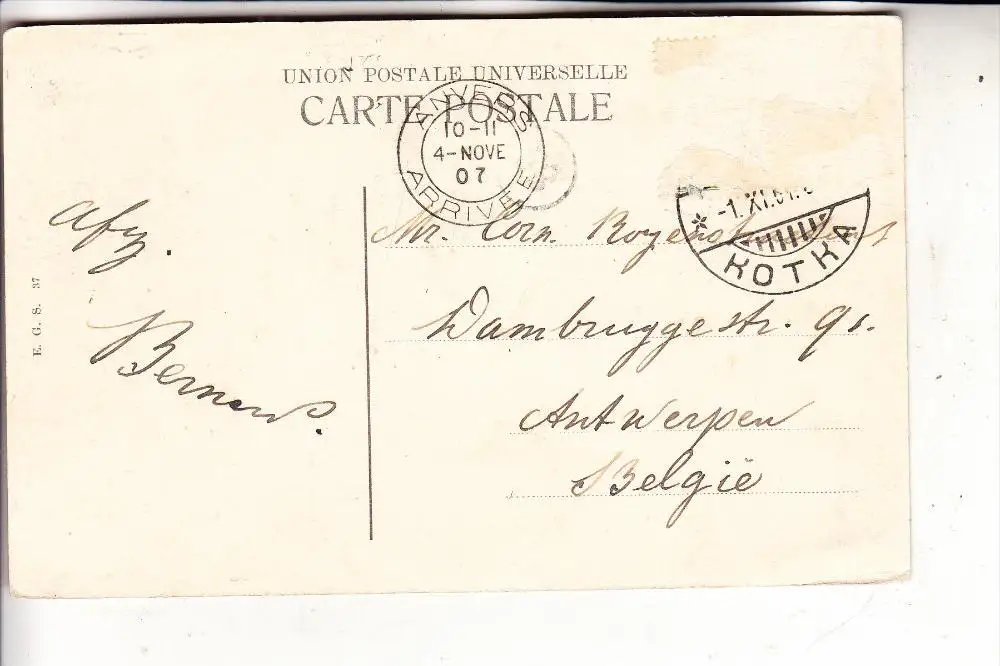 UNION POSTALE UNIVERSELLE
CARTE POSTALE
ANVERS
10-11
4-NOVE
07
ARRIVÉE
-1. XI.
KOTKA
Mr. Corn.
Dambruggestr. 91.
Antwerpen
België
E. G. S. 37